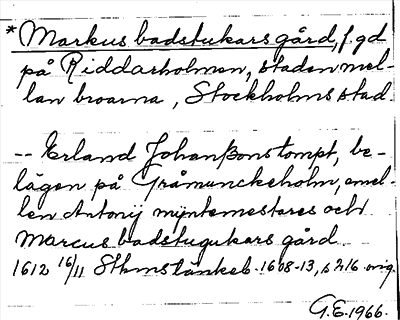 * Markus badstukars gård, f. gd
på Riddarholmen, staden mel-
lan broarna, Stockholms stad
-- Erland Johanßons tompt, be-
lägen på Gråmunckeholm, emel-
len Antonij myntemestares och
Marcus badstugukars gård
1612 16/11 Sthms tänkeb. 1608-13, s 216 orig.
G.E. 1966.